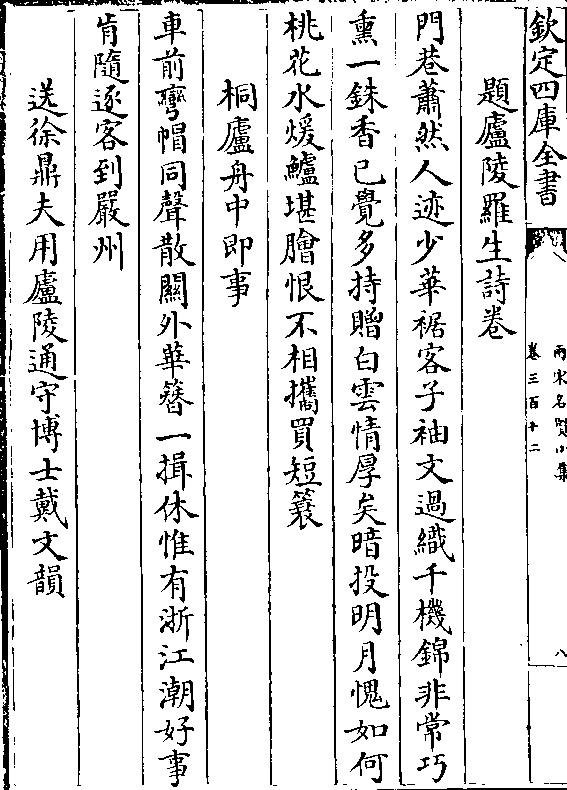 欽定四庫全書
兩宋名賢小集
卷三百十二
八
題廬陵羅生詩卷
門巷蕭然人迹少華裾客子袖文過織千機錦非常巧
熏一銖香已覺多持贈白雲情厚矣暗投明月愧如何
桃花水煖鱸堪膾恨不相攜買短簑
桐廬舟中即事
車前彎帽同聲散關外華簪一揖休惟有浙江潮好事
肯隨逐客到嚴州
送徐鼎夫用廬陵通守博士戴文韻